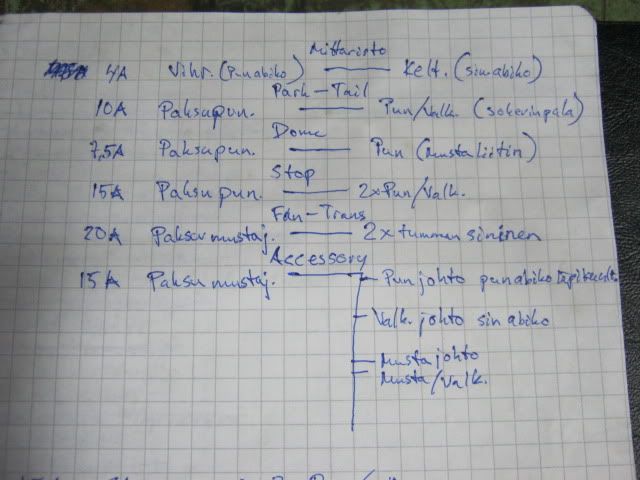 Mittaristo
4A Vihr. (Punabiko) Kelt. (sinabiko)
Park-Tail
10A Paksupun. Pun/Valk. (sokeripala)
Dome
7,5A Paksupun. Pun (Mustaliitin)
Stop
15A Paksupun. 2xPun/Valk.
Fan-Trans
20A Paksu mustaj. 2xtumman sininen
Accessory
15A Paksu mustaj. Punjohto punabiko
Valk. johto sinabiko
Mustajohto
Musta/Valk.